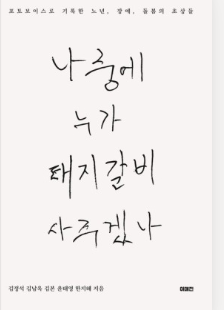 포토보이스로 기록한 노년, 장애, 돌봄의 초상들
나중에
누가
돼지갈비
사주겠나
김정석 김남옥 김본 윤태영 한지혜 지음